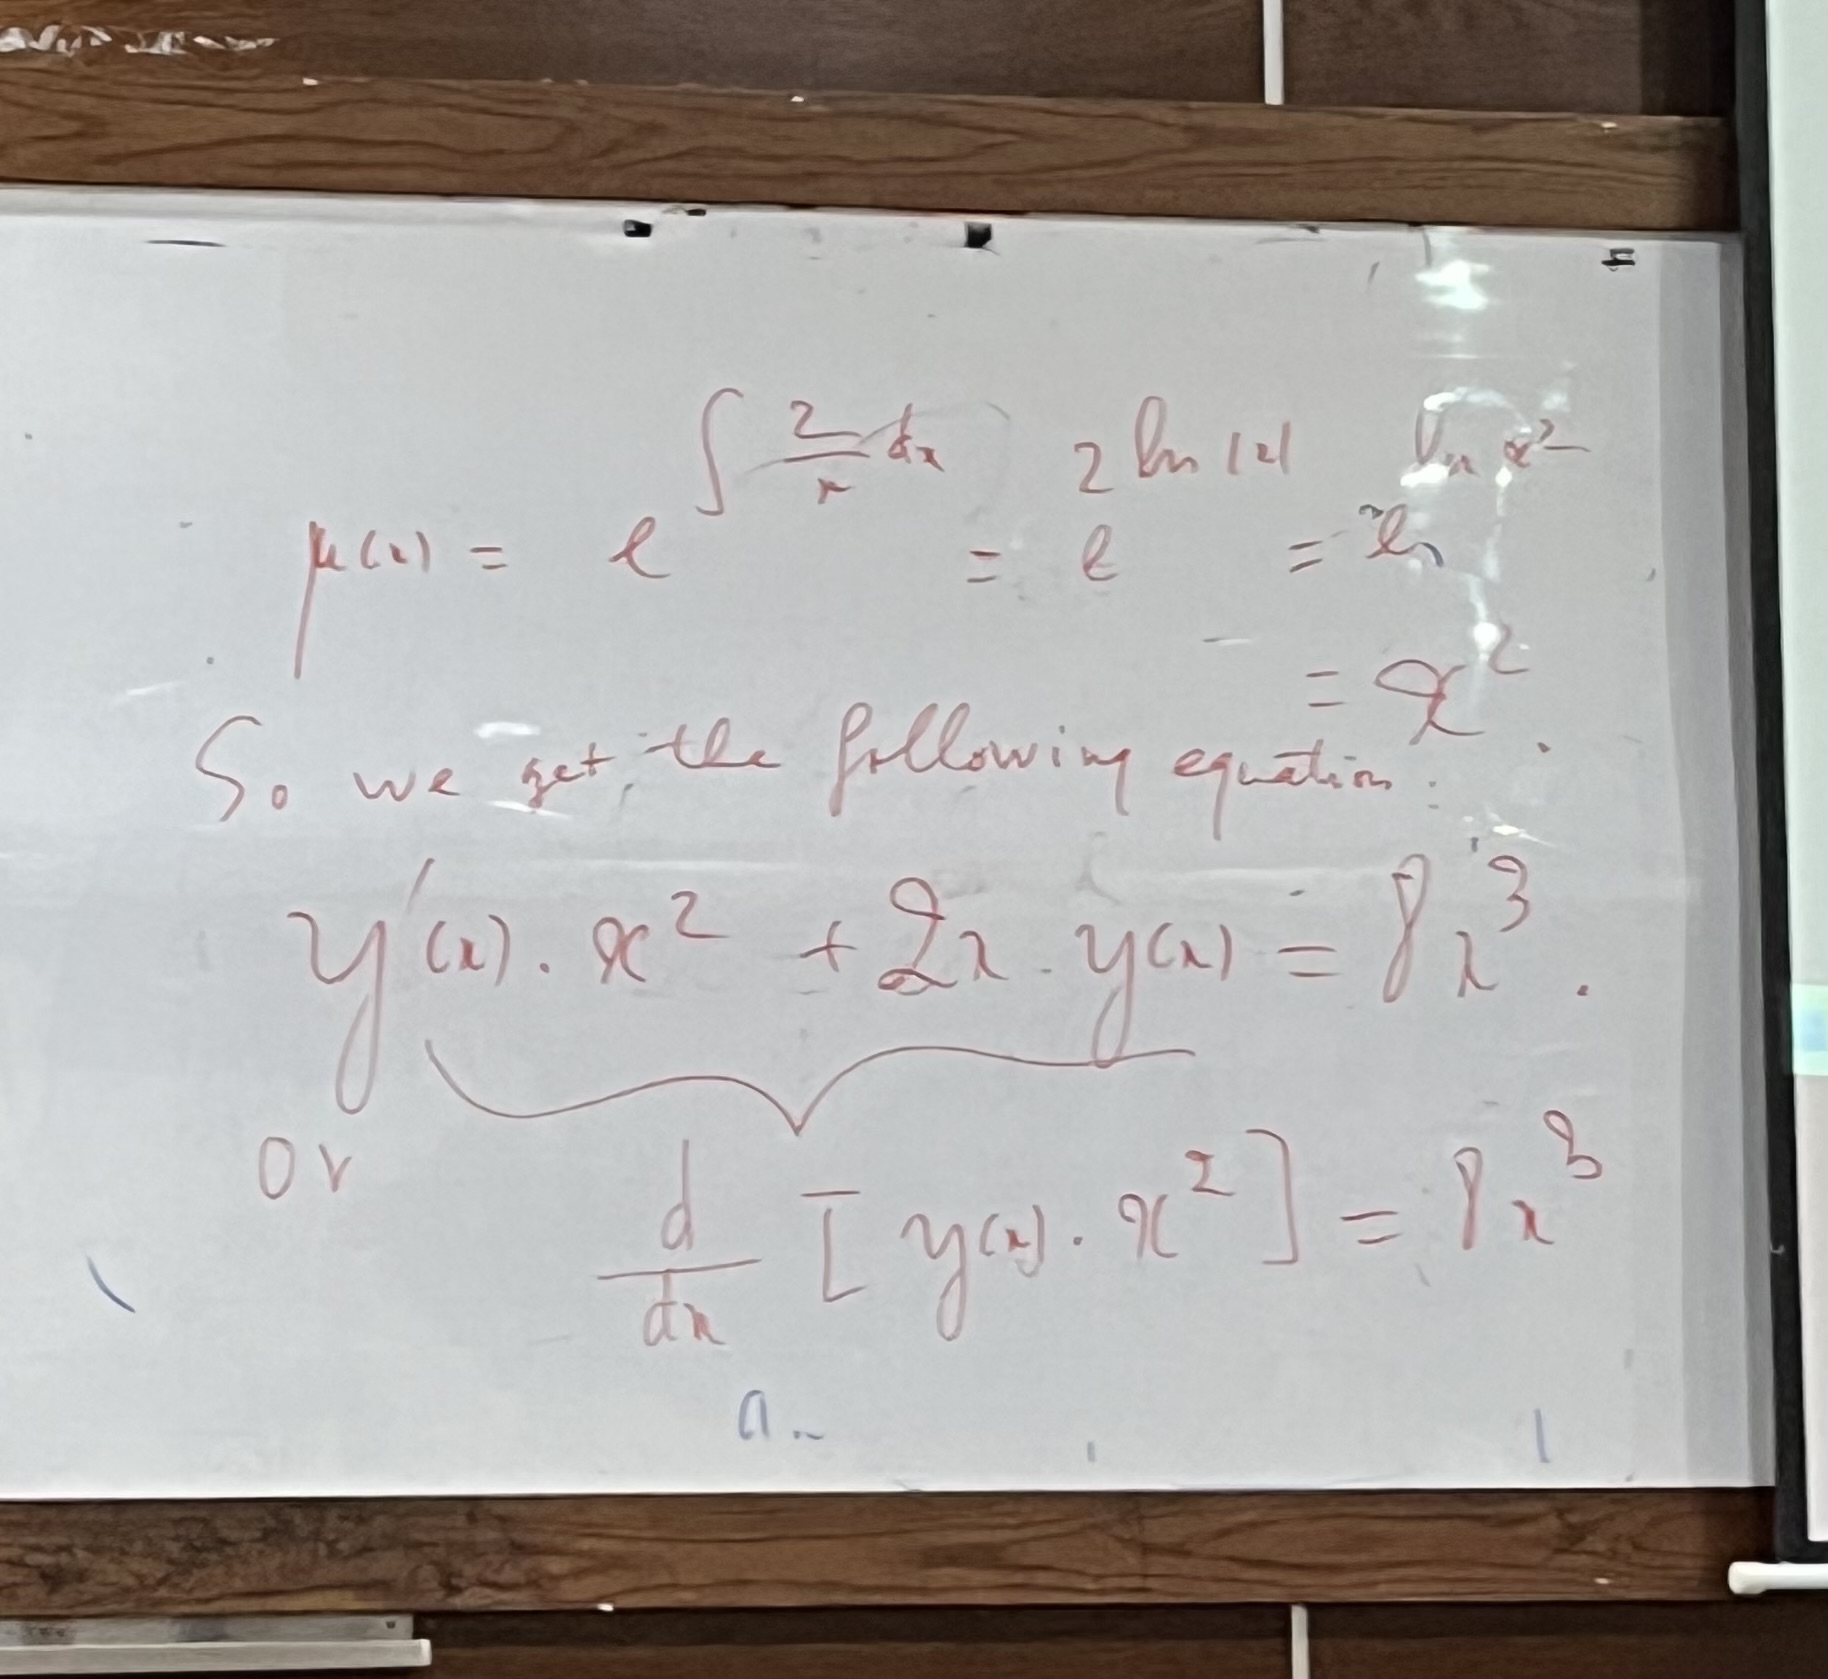 μ(x) = e^{∫ 2/x dx} = e^{2 ln |x|} = e^{ln x²}
= x².
So we get the following equation:
y'(x) . x² + 2x . y(x) = 8x³ .
or d/dx [ y(x) . x² ] = 8x³